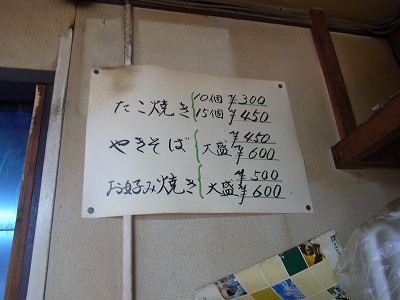 たこ焼き 10個 ¥300
15個 ¥450
やきそば ¥450
大盛 ¥600
お好み焼き ¥500
大盛 ¥600